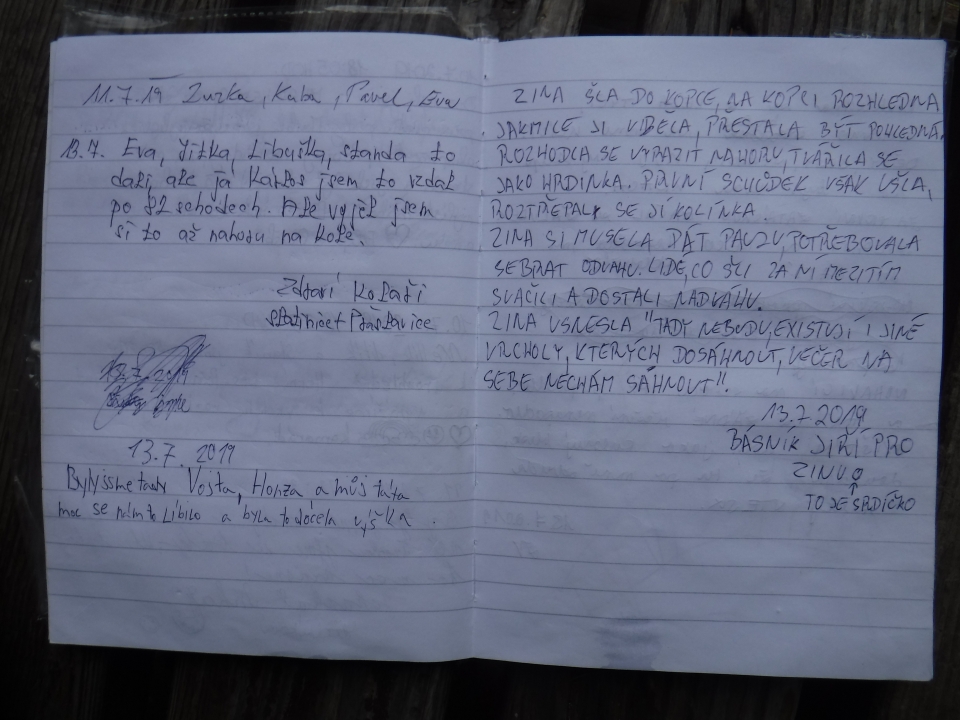 11.7.19 Zuzka, Kuba, Pavel, Eva
13.7. Eva, Jitka, Libuška, Standa to
dali, ale já Karlos jsem to vzdal
po 82 schodech. Ale vyjel jsem
si to až nahoru na kole.
Zdraví Kolaři
13.7.2019
13.7.2019
Byly jsme tady Vojta, Honza a můj táta
moc se nám to líbilo a byla to docela vyška.
ZINA ŠLA DO KOPCE, NA KOPCI ROZHLEDNA
JAKMILE JI VIDĚLA, PŘESTALA BÝT POHLEDNÁ.
ROZHODLA SE VYRAZIT NAHORU, TVÁŘILA SE
JAKO HRDINKA. PRVNÍ SCHŮDEK VŠAK UŠLA,
ROZTŘEPALY SE JÍ KOLÍNKA.
ZINA SI MUSELA DÁT PAUZU, POTŘEBOVALA
SEBRAT ODVAHU. LIDÉ, CO ŠLI ZA NÍ MEZITÍM
SVAČILI A DOSTALI NADVÁHU.
ZINA USNESLA "TADY NEBUDU, EXISTUJÍ I JINÉ
VRCHOLY, KTERÝCH DOSÁHNOUT, VEČER NA
SEBE NECHÁM SÁHNOUT".
13.7.2019
BÁSNÍK JIŘÍ PRO
ZINU
TO JE SRDÍČKO